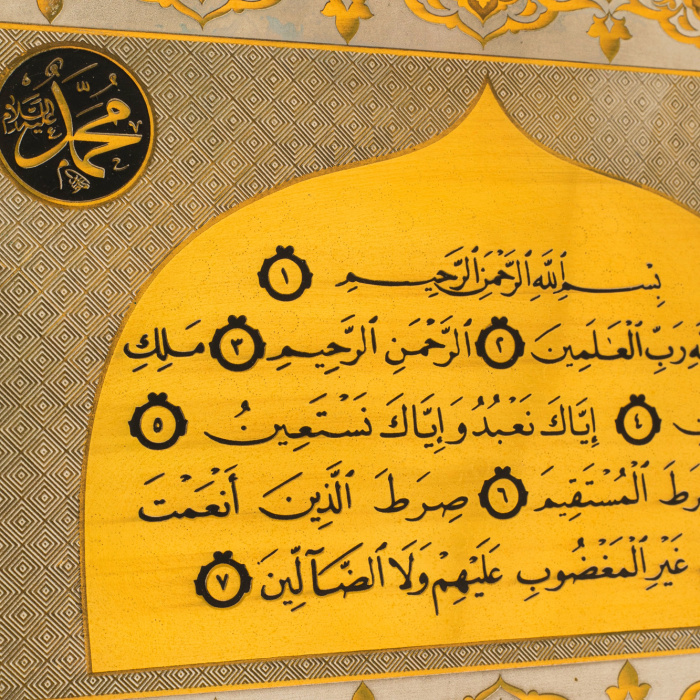 محمد عليه السلام
بِسْمِ ٱللَّهِ ٱلرَّحْمَٰنِ ٱلرَّحِيمِ ١
رَبِّ ٱلْعَٰلَمِينَ ٢ ٱلرَّحْمَٰنِ ٱلرَّحِيمِ ٣ مَٰلِكِ
٤ إِيَّاكَ نَعْبُدُ وَإِيَّاكَ نَسْتَعِينُ ٥
ٱلْمُسْتَقِيمَ ٦ صِرَٰطَ ٱلَّذِينَ أَنْعَمْتَ
غَيْرِ ٱلْمَغْضُوبِ عَلَيْهِمْ وَلَا ٱلضَّآلِّينَ ٧